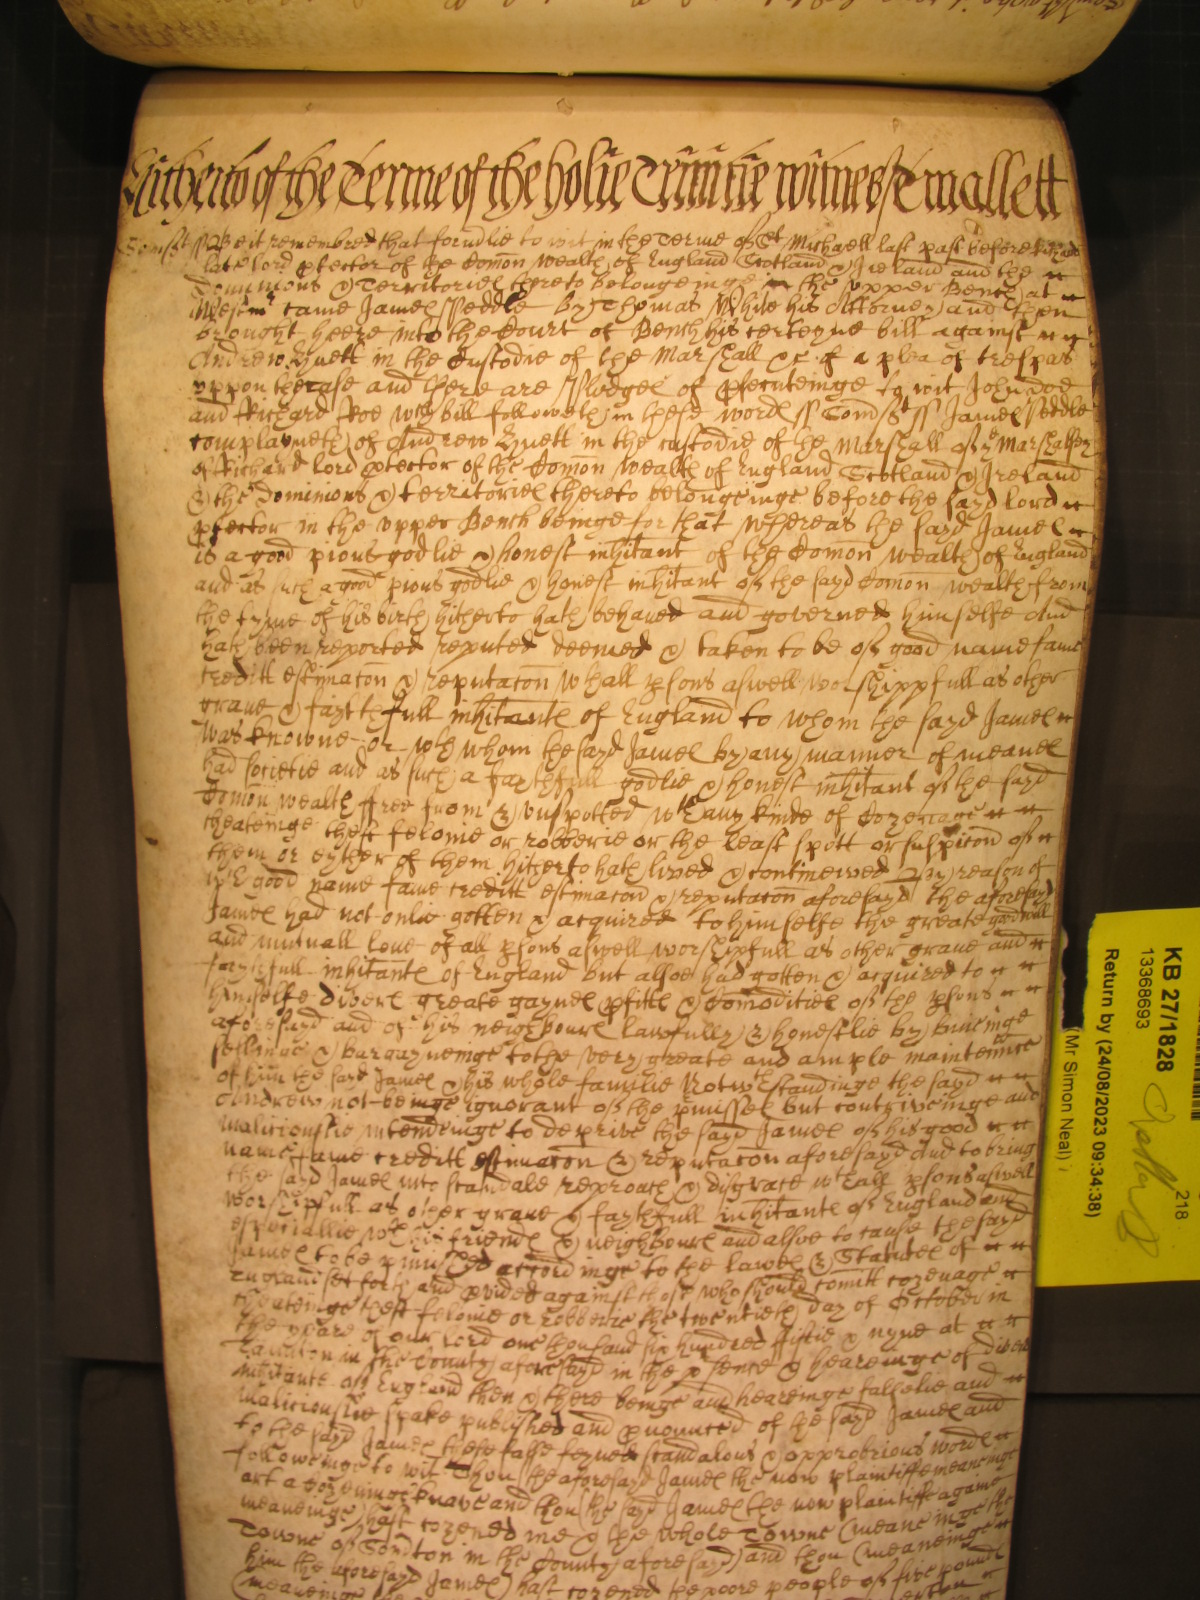 Hitherto of the Terme of the holie Trinitie witness T mallett
Somst ss Be it remembred that formlie to wit in the Terme of St Michaell last past before Richard
late lord ptector of the Comon wealth of England Scotland & Ireland and the
Dominions & Territories thereto belongeinge in the upper Bench at
Westmr came James Peddle by Thomas White his Attorney and then
brought heere into the Court of Bench his certeyne bill against
Andrew Quett in the Custodie of the Marshall &c of a plea of trespas
uppon the case and there are pledges of psecuteinge to wit John doe
and Richard Roe wch bill followeth in these words ss Somst ss James Peddle
complayneth of Andrew Quett in the custodie of the Marshall of ye Marshalsey
of Richard lord ptector of the Comon wealth of England Scotland & Ireland
& the Dominions & territories thereto belongeinge before the sayd lord
ptector in the upper Bench beinge for that whereas the sayd James
is a good pious godlie & honest inhitant of the Comon wealth of England
and as such a good pious godlie & honest inhitant of the sayd Comon wealth from
the tyme of his birth hitherto hath behaved and governed himselfe And
hath been reported reputed deemed & taken to be of good name fame
creditt estimacon & reputacon wth all psons aswell worshippfull as other
grave & faythfull inhitants of England to whom the sayd James
was knowne or wth whom the sayd James by any manner of meanes
had societie and as such a faythfull godlie & honest inhitant of the sayd
Comon wealth free from & unspotted wth any kinde of Cozenage
cheateinge theft felonie or robberie or the least spott or suspicon of
them or eyther of them hitherto hath lived & continewed By reason of
wch good name fame creditt estimacon & reputacon aforesayd the aforesayd
James had not onlie gotten & acquired to himselfe the greate goodwill
and mutuall love of all psons aswell worshipfull as other grave and
faythfull inhitants of England but alsoe had gotten & acquired to
himselfe divers greate gaynes pfitts & Comodities of the psons
aforesayd and of his neighbours lawfully & honestlie by buieinge
sellinge & bargayneinge to the very greate and ample maintennce
of him the sayd James & his whole familie Notwthstandinge the sayd
Andrew not beinge ignorant of the pmisses but contriveinge and
maliciouslie intendeinge to deprive the sayd James of his good
name fame creditt estimacon & reputacon aforesayd And to bring
the sayd James into scandale reproach & disgrace wth all psons aswell
worshipfull as other grave & faythfull inhitants of England and
especiallie wth his friends & neighbours and alsoe to cause the sayd
James to be punished accordinge to the lawes & Statutes of
England set forth and pvided against those who should comitt cozenage
cheateinge theft felonie or robberie the twentieth day of October in
the yeare of our Lord one thousand six hundred fiftie & nyne at
Taunton in the County aforesayd in the psence & heareinge of divers
inhitants of England then & there beinge and heareinge falselie and
maliciouslie spake published and pnounced of the sayd James and
to the sayd James these false feyned scandalous & opprobrious words
followeinge to wit Thou (the aforesayd James the now plaintiffe meaneinge)
art a Cozeninge knave and thou (the sayd James the now plaintiffe againe
meaneinge) hast cozened me & the whole Towne (meaneinge the
Towne of in the County aforesayd) and thou (meaneinge
him the aforesayd James) hast cozened the poore people of five pounds
(meaneinge the
KB 27/1828
13368693
218
Return by (24/08/2023 09:34:38)
(Mr Simon Neal)